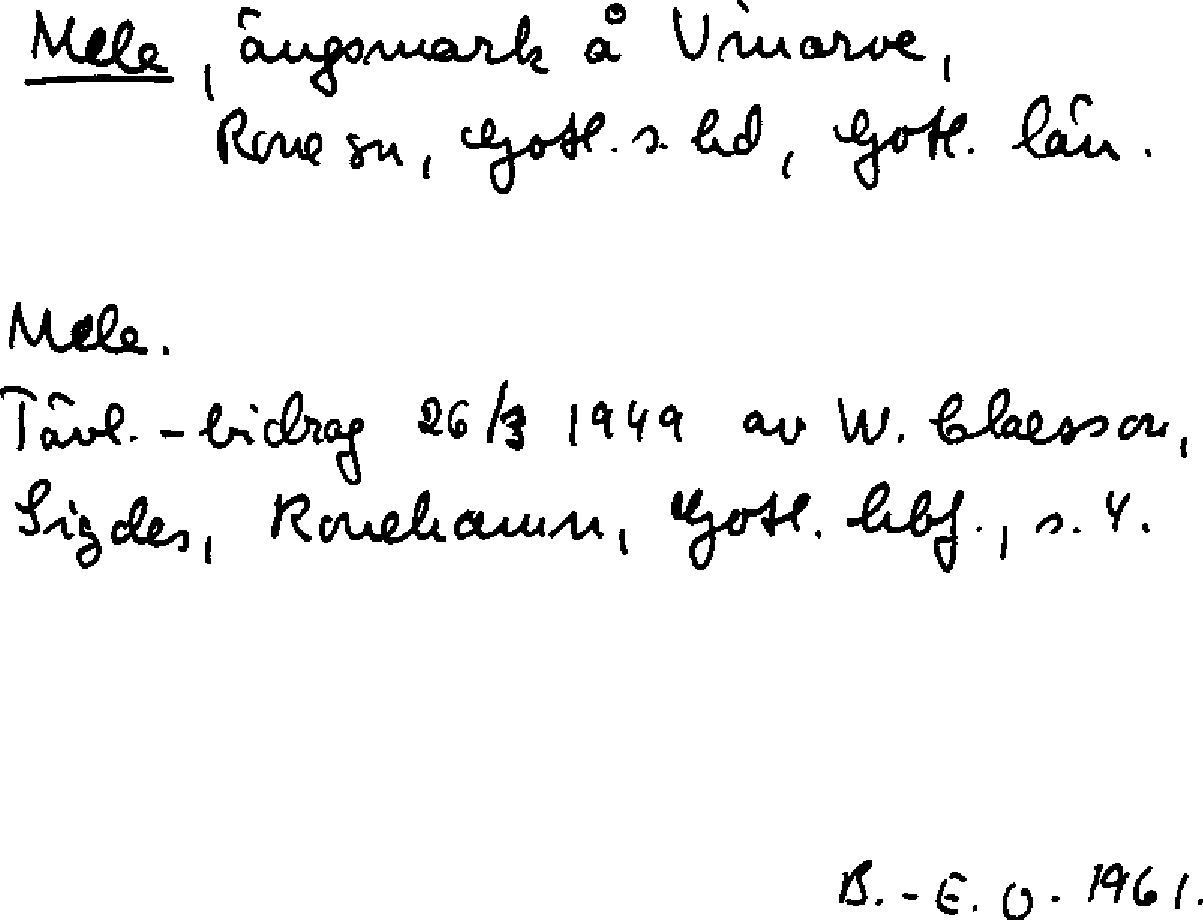 Mele, ängsmark å Vinarve,
Rone sn, Gotl. s. hd, Gotl. län.
Mele.
Tävl.-bidrag 26/3 1949 av W. Claesson,
Sigdes, Ronehamn, Gotl. hbf., s. 4.
B.-E. O. 1961.